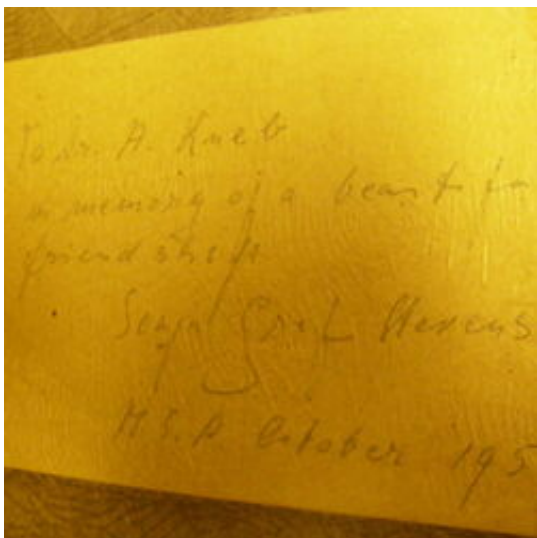 To Dr. A. Kneb
in memory of a beautifu
friendship
Stevens
October 195